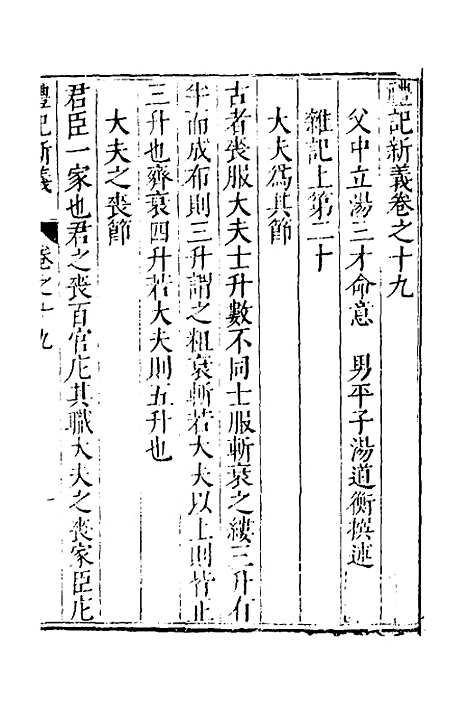 禮記新義卷之十九
父中立湯三才命意　男平子湯道衡撰述
雜記上第二十
大夫爲其節
古者喪服大夫士升數不同士服斬衰之縷三升有
半而成布則三升謂之粗衰斬若大夫以上則皆止
三升也齊衰四升若大夫則五升也
大夫之喪節
君臣一家也君之喪百官庀其職大夫之喪家臣庀
禮記新義　卷之十九　一